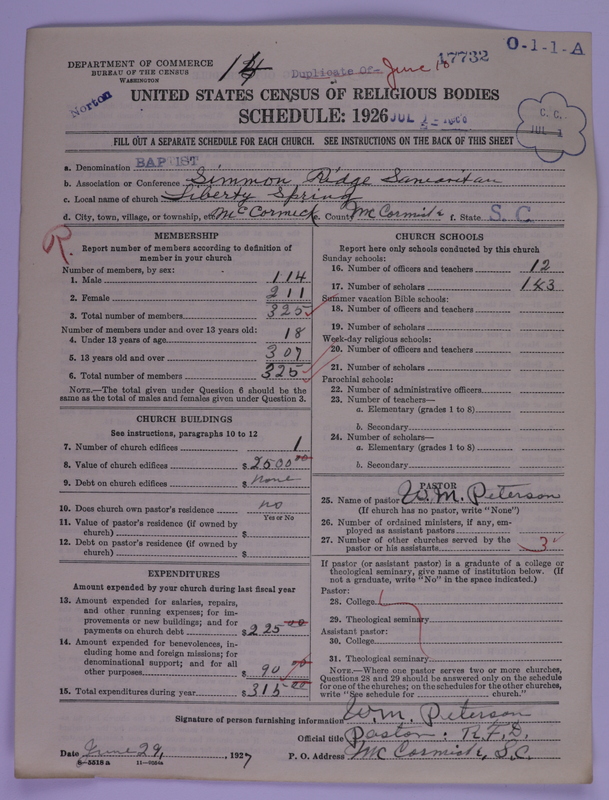 DEPARTMENT OF COMMERCE
BUREAU OF THE CENSUS
WASHINGTON
14
Duplicate Of June 18
17732
O-1-1-A
Norton
UNITED STATES CENSUS OF RELIGIOUS BODIES
SCHEDULE: 1926
C. C.
JUL 1
FILL OUT A SEPARATE SCHEDULE FOR EACH CHURCH. SEE INSTRUCTIONS ON THE BACK OF THIS SHEET
a. Denomination BAPTIST
b. Association or Conference Simmon Ridge Samaritan
c. Local name of church Liberty Spring
d. City, town, village, or township, etc. McCormick e. County McCormick f. State S. C.
R.
MEMBERSHIP
Report number of members according to definition of
member in your church
Number of members, by sex:
1. Male 114
2. Female 211
3. Total number of members 325
Number of members under and over 13 years old:
4. Under 13 years of age 18
5. 13 years old and over 307
6. Total number of members 325
NOTE.—The total given under Question 6 should be the
same as the total of males and females given under Question 3.
CHURCH BUILDINGS
See instructions, paragraphs 10 to 12
7. Number of church edifices 1
8. Value of church edifices $2500.00
9. Debt on church edifices $ none
10. Does church own pastor's residence no
Yes or No
11. Value of pastor's residence (if owned by
church) $
12. Debt on pastor's residence (if owned by
church) $
EXPENDITURES
Amount expended by your church during last fiscal year
13. Amount expended for salaries, repairs,
and other running expenses; for im-
provements or new buildings; and for
payments on church debt $225.00
14. Amount expended for benevolences, in-
cluding home and foreign missions; for
denominational support; and for all
other purposes $90.00
15. Total expenditures during year $315.00
CHURCH SCHOOLS
Report here only schools conducted by this church
Sunday schools:
16. Number of officers and teachers 12
17. Number of scholars 143
Summer vacation Bible schools:
18. Number of officers and teachers
19. Number of scholars
Week-day religious schools:
20. Number of officers and teachers
21. Number of scholars
Parochial schools:
22. Number of administrative officers
23. Number of teachers—
a. Elementary (grades 1 to 8)
b. Secondary
24. Number of scholars—
a. Elementary (grades 1 to 8)
b. Secondary
PASTOR
25. Name of pastor W. M. Peterson
(If church has no pastor, write "None")
26. Number of ordained ministers, if any, em-
ployed as assistant pastors
27. Number of other churches served by the
pastor or his assistants 3
If pastor (or assistant pastor) is a graduate of a college or
theological seminary, give name of institution below. (If
not a graduate, write "No" in the space indicated.)
Pastor:
28. College
29. Theological seminary
Assistant pastor:
30. College
31. Theological seminary
NOTE.—Where one pastor serves two or more churches,
Questions 28 and 29 should be answered only on the schedule
for one of the churches; on the schedules for the other churches,
write "See schedule for church."
Signature of person furnishing information W. M. Peterson
Official title Pastor. R.F.D.
Date June 29, 1927 P. O. Address McCormick, S.C.
8-5518a